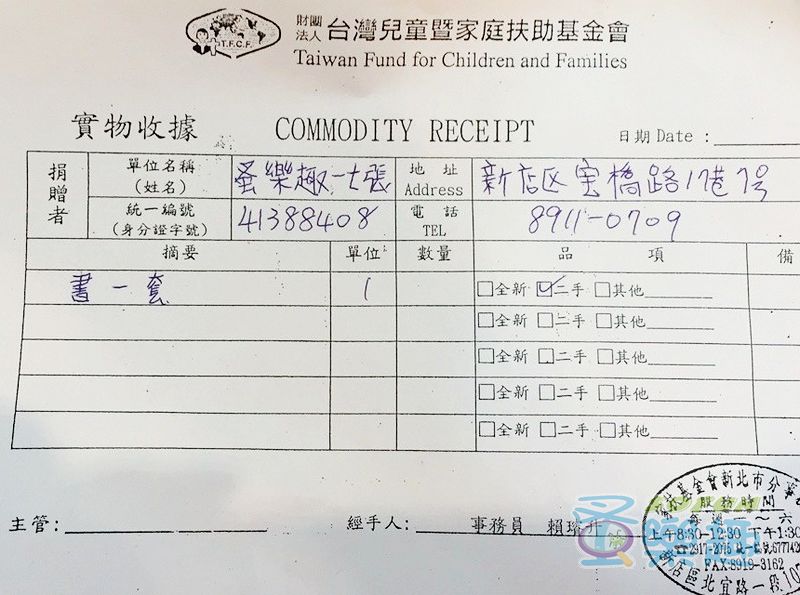 T.F.C.F.
財團法人 台灣兒童暨家庭扶助基金會
Taiwan Fund for Children and Families
實物收據 COMMODITY RECEIPT 日期 Date :
捐贈者 單位名稱 (姓名) 蚤樂趣一七張 地址 Address 新店区宝橋路17巷7号
統一編號 (身分證字號) 41388408 電話 TEL 8911-0709
摘要 單位 數量 品項 備
書一套 1 □全新 ☑二手 □其他
□全新 □二手 □其他
□全新 □二手 □其他
□全新 □二手 □其他
□全新 □二手 □其他
主管: 經手人: 事務員 賴瑢升
基金會新北市分事
服務時間
每週 ~六
上午8:30-12:30 下午1:30
☎2917-2015 統一編號677742
FAX:8919-3162
新店區北宜路一段107
蚤樂趣